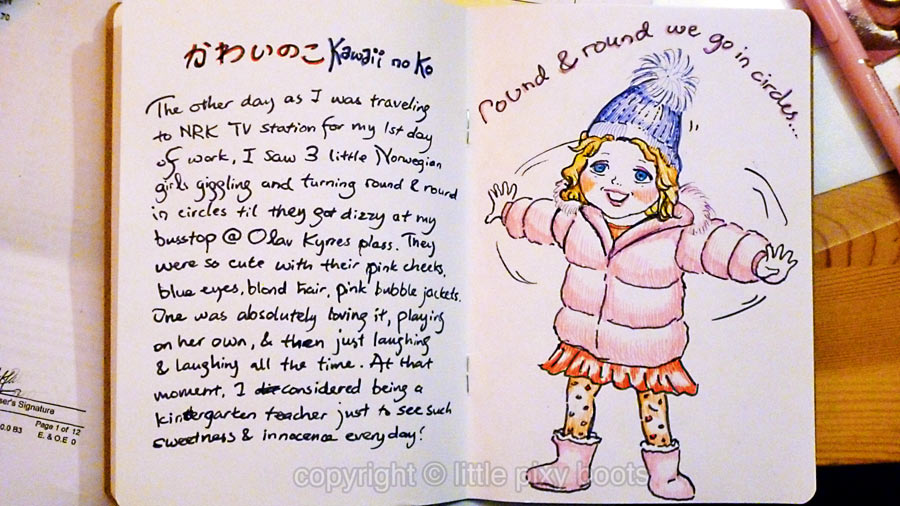 かわいのこ Kawaii no Ko
The other day as I was traveling
to NRK TV station for my 1st day
of work, I saw 3 little Norwegian
girls giggling and turning round & round
in circles til they got dizzy at my
busstop @ Olav Kyrres plass. They
were so cute with their pink cheeks,
blue eyes, blond hair, pink bubble jackets.
One was absolutely loving it, playing
on her own, & then just laughing
& laughing all the time. At that
moment, I considered being a
kindergarten teacher just to see such
sweetness & innocence everyday!
round & round we go in circles...
70
ser's Signature
Page 1 of 12
0.0 B3 E. & O.E 0
copyright © little pixy boots